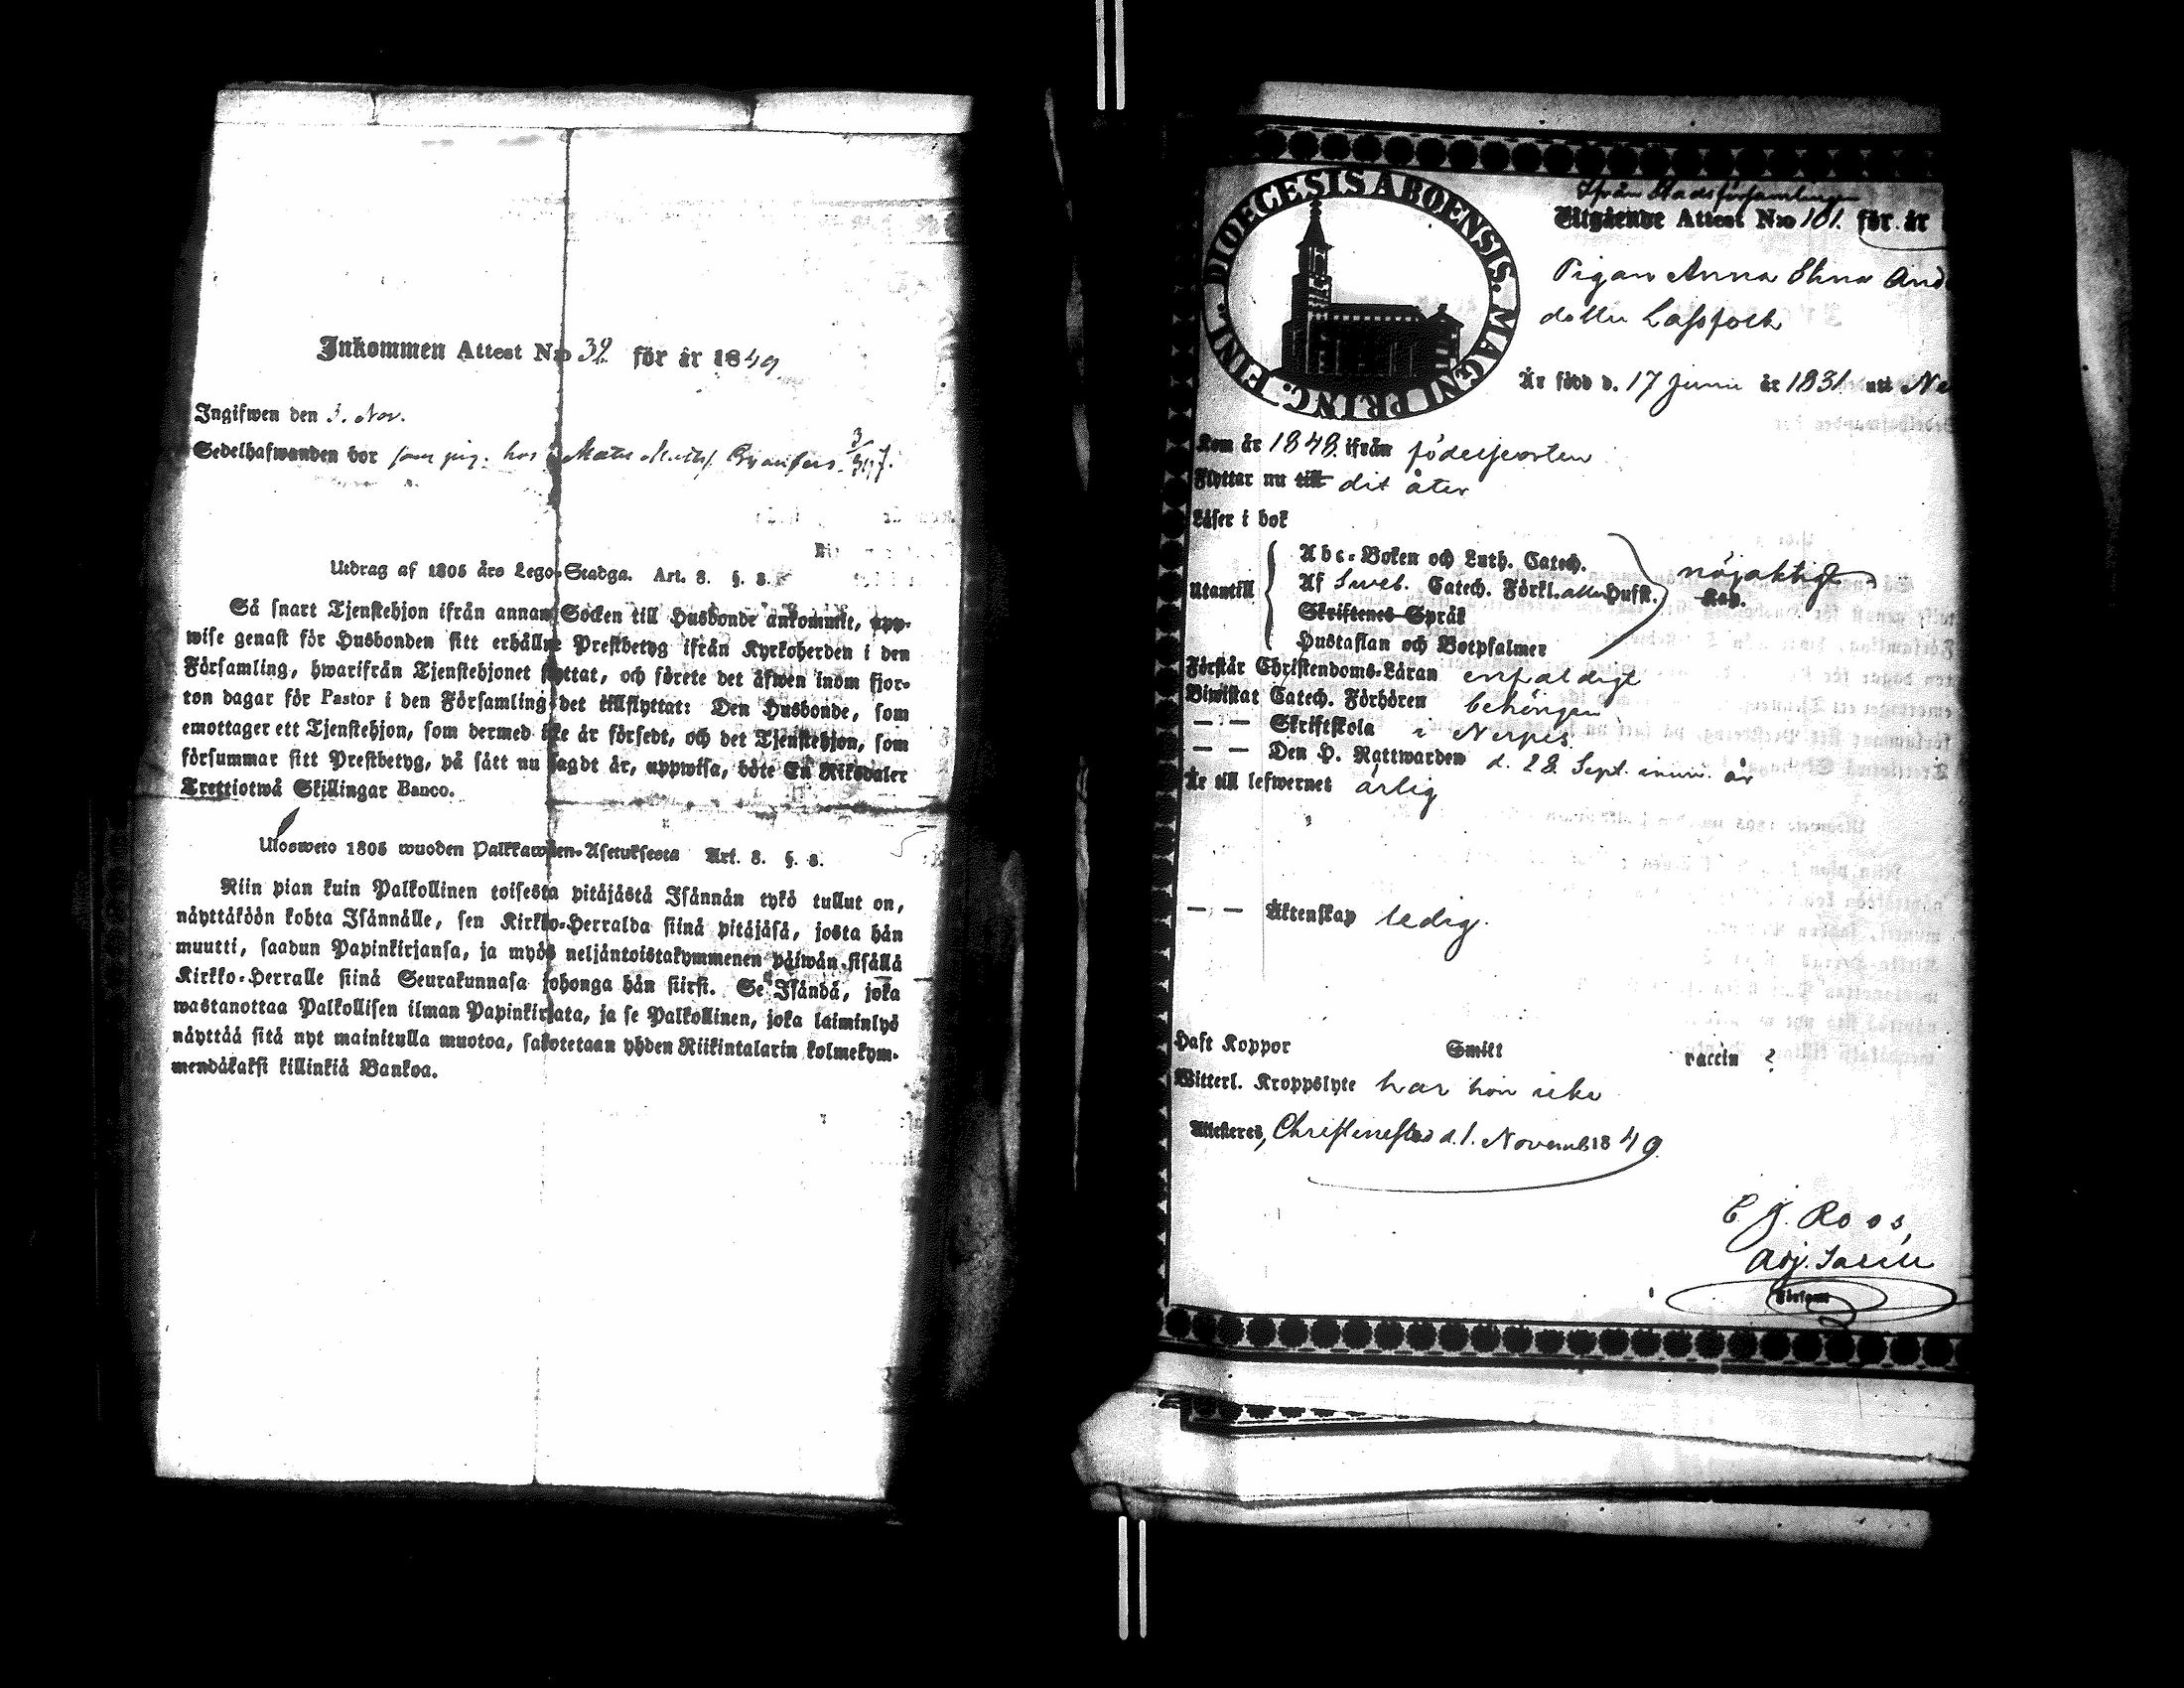 Inkommen Attest N:o 39. för år 1849.
Ingifwen den 3. Nov.
Sedelhafwanden bor som pig. hos Matts Matts
Utdrag af 1805 års Lego-Stadga. Art. 8. §. 8.
Så snart Tjenstehjon ifrån annan Socken till Husbonde ankommit, upp-
wise genast för Husbonden sitt erhållne Prestbetyg ifrån Kyrkoherden i den
Församling, hwarifrån Tjenstehjonet flyttat, och förete det äfwen inom fjor-
ton dagar för Pastor i den Församling det tillflyttat: Den Husbonde, som
emottager ett Tjenstehjon, som dermed icke är försedt, och det Tjenstehjon, som
försummar sitt Prestbetyg, på sätt nu sagdt är, uppwisa, böte En Riksdaler
Trettiotwå Skillingar Banco.
Ulosweto 1805 wuoden Palkkawäen-Asetuksesta Art. 8. §. 8.
Niin pian kuin Palkollinen toisesta pitäjästä Isännän tykö tullut on,
näyttäköön kohta Isännälle, sen Kirkko-Herralda siinä pitäjäsä, josta hän
muutti, saadun Papinkirjansa, ja myös neljäntoistakymmenen päiwän sisällä
Kirkko-Herralle siinä Seurakunnasa johonga hän siirsi. Se Isändä, joka
wastanottaa Palkollisen ilman Papinkirjata, ja se Palkollinen, joka laiminlyö
näyttää sitä nyt mainitulla muotoa, sakotetaan yhden Riikintalarin kolmekym-
mendäkaksi killinkiä Bankoa.
DIOECESIS ABOENSIS. MAGNI PRINC. FINL.
Ifrån Stadsförsamlingen
Utgående Attest N:o 101. för år
Pigan Anna Stina And
dotter Lassfolk
Är född d. 17 Junii år 1831 uti Ne
Kom år 1848. ifrån födelseorten
Flyttar nu till dit åter
Läser i bok
Utantill
Abc-Boken och Luth. Catech.
Af Sweb. Catech. Förkl. eller Hufst.
Skriftenes Språk
Hustaflan och Botpsalmer
nöjaktigt
Kap.
Förstår Christendoms-Läran enfaldigt
Biwistat Catech. Förhören behörigen
— — Skriftskola i Nerpes.
— — Den H. Nattwarden d. 23. Sept. innev. år
Är till lefwernet ärlig
— — Äktenskap ledig.
Haft Koppor Smitt vaccin ?
Witterl. Kroppslyte har hon icke
Attesteras, Christinestad d. 1. Novemb. 1849.
C. J. Roos,
Adj. Sacell.
Församl.